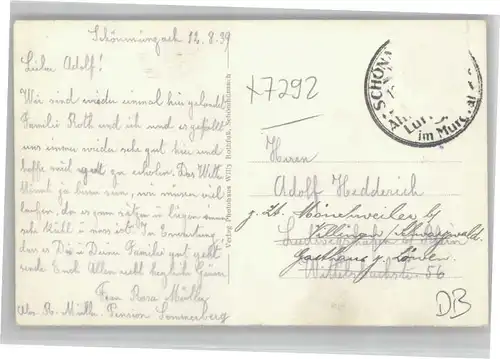 Schönmünzach 12.8.39
Lieber Adolf!
Wir sind wieder einmal hier gelandet
Familie Roth und ich und es gefällt
uns immer wieder sehr gut hier und
hoffe mich gut zu erholen. Das Wetter
könnt ja besser sein, wir müssen viel
laufen, da es zum sitzen u. liegen
sehr kühl u. nass ist. In Erwartung
das es Dir u. Deiner Familie gut geht
sende Euch Allen recht herzliche Grüsse
Frau Rosa Müller
Abs. R. Müller Pension Sommerberg
Verlag Photohaus Willy Schönmünzach
+7292
SCHÖNM
Luft
im Murgtal
Herrn
Adolf Hedderich
z. Zt. Mönchweiler b/
Villingen / Schwarzwald
Ludwigshafen a. Rhein
Gasthaus z. Löwen
Wittelsbachstr. 56
DB